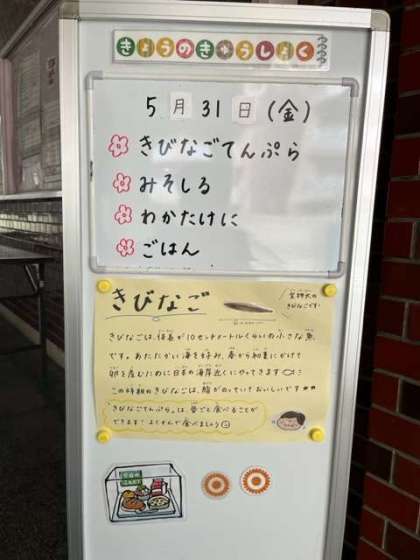 きょうのきゅうしょく
5月31日(金)
きびなごてんぷら
みそしる
わかたけに
ごはん
きびなご
実物大の
きびなごです!
きびなごは、体長が10センチメートルくらいの小さな魚
です。あたたかい海を好み、春から初夏にかけて
卵を産むために日本の海岸近くにやってきます
この時期のきびなごは、脂がのっていておいしいです
「きびなごてんぷら」は、骨ごと食べることが
できます!よくかんで食べましょう